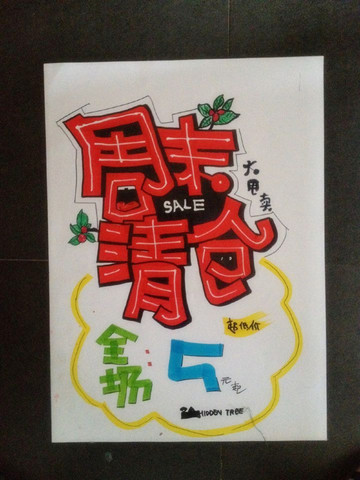 周末
SALE
清仓
大甩卖
超低价
全场
5折起
HIDDEN TREE